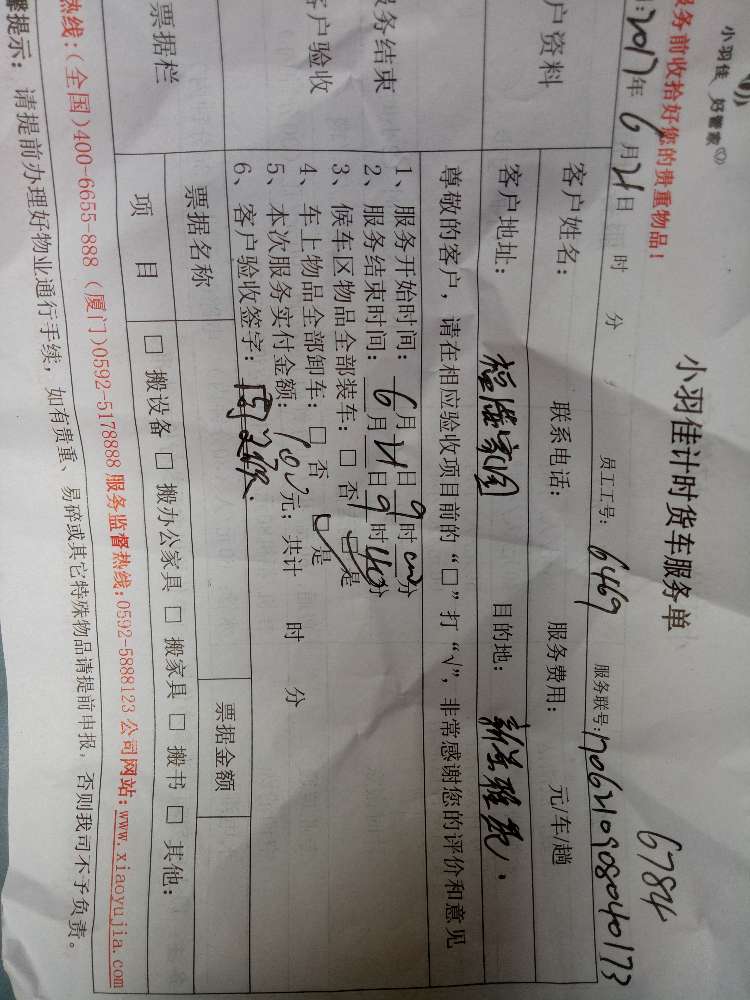 小羽佳 好管家
服务前收拾好您的贵重物品!
小羽佳计时货车服务单
6784
:2017年6月21日 时 分 员工工号: 6469 服务联号: 1706210908040173
户资料
客户姓名: 联系电话: 服务费用: 元/车/趟
客户地址: 家园 目的地:
务结束
户验收
尊敬的客户,请在相应验收项目前的“□”打“√”,非常感谢您的评价和意见
1、服务开始时间: 6月21日9时00分
2、服务结束时间: 6月21日9时40分
3、候车区物品全部装车: □ 否 □ 是
4、车上物品全部卸车: □ 否 □ 是
5、本次服务实付金额: 元; 共计 时 分
6、客户验收签字:
票据栏
票据名称 票据金额
项 目 □ 搬设备 □ 搬办公家具 □ 搬家具 □ 搬书 □ 其他:
热线:(全国)400-6655-888 (厦门)0592-5178888 服务监督热线:0592-5888123 公司网站:www.xiaoyujia.com
馨提示: 请提前办理好物业通行手续,如有贵重、易碎或其它特殊物品请提前申报,否则我司不予负责。